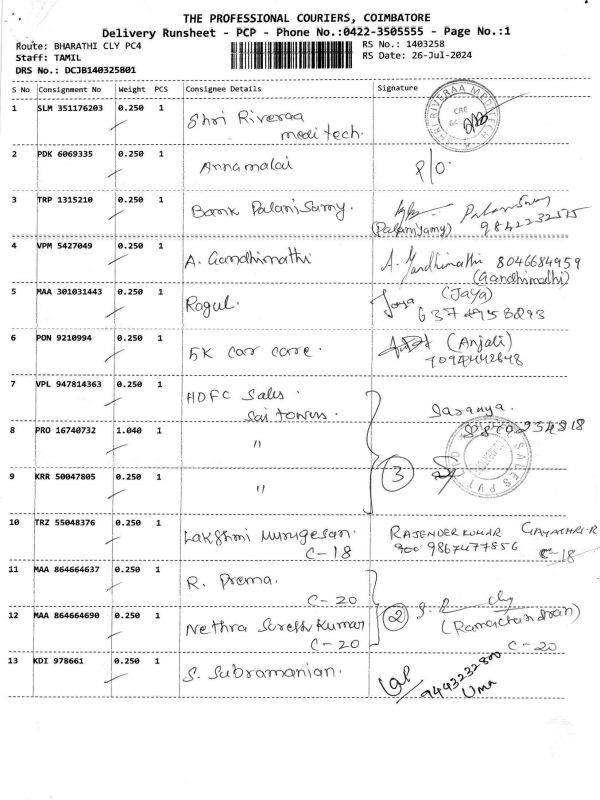 THE PROFESSIONAL COURIERS, COIMBATORE
Delivery Runsheet - PCP - Phone No.:0422-3505555 - Page No.:1
Route: BHARATHI CLY PC4 RS No.: 1403258
Staff: TAMIL RS Date: 26-Jul-2024
DRS No.: DCJB140325801
S No Consignment No Weight PCS Consignee Details Signature
1 SLM 351176203 0.250 1 Shri Riveraa
medi tech.
SHRI RIVERAA MEDITECH
CBE
2 PDK 6069335 0.250 1 Annamalai P/O.
3 TRP 1315210 0.250 1 Bank Palanisamy.
(Palaniyamy) 9842232575
4 VPM 5427049 0.250 1 A. Gandhimathi A. Gandhimathi 8046684959
(Gandhimathi)
5 MAA 301031443 0.250 1 Rogul. Jaya (Jaya)
6374958293
6 PON 9210994 0.250 1 5K car care. (Anjali)
7 VPL 947814363 0.250 1 HDFC Sales. Saranya.
Sai towers.
8 PRO 16740732 1.040 1 "
SALES PVT LTD
9 KRR 50047805 0.250 1 " 3
10 TRZ 55048376 0.250 1 Lakshmi Murugesan. RAJENDERKUMAR GAYATHRI-R
C-18 9867477856 C-18
11 MAA 864664637 0.250 1 R. Prema.
C-20
12 MAA 864664690 0.250 1 Nethra Suresh Kumar 2 (Ramachandran)
C-20 C-20
13 KDI 978661 0.250 1 S. Subramanian.
9493232800
Uma